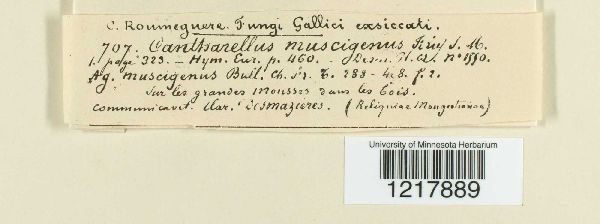 C. Roumeguère. Fungi Gallici exsiccati.
707. Cantharellus muscigenus Fr. S. M.
1. page 323. — Hym. Eur. p. 460. — n° 1550.
Ag. muscigenus Bull. Ch. Fr. t. 288 - 48. f. 2.
Sur les grandes mousses dans les bois.
Communicavit. Clar. Desmazières. (Reliquiae Mougeotianae)
University of Minnesota Herbarium
1217889